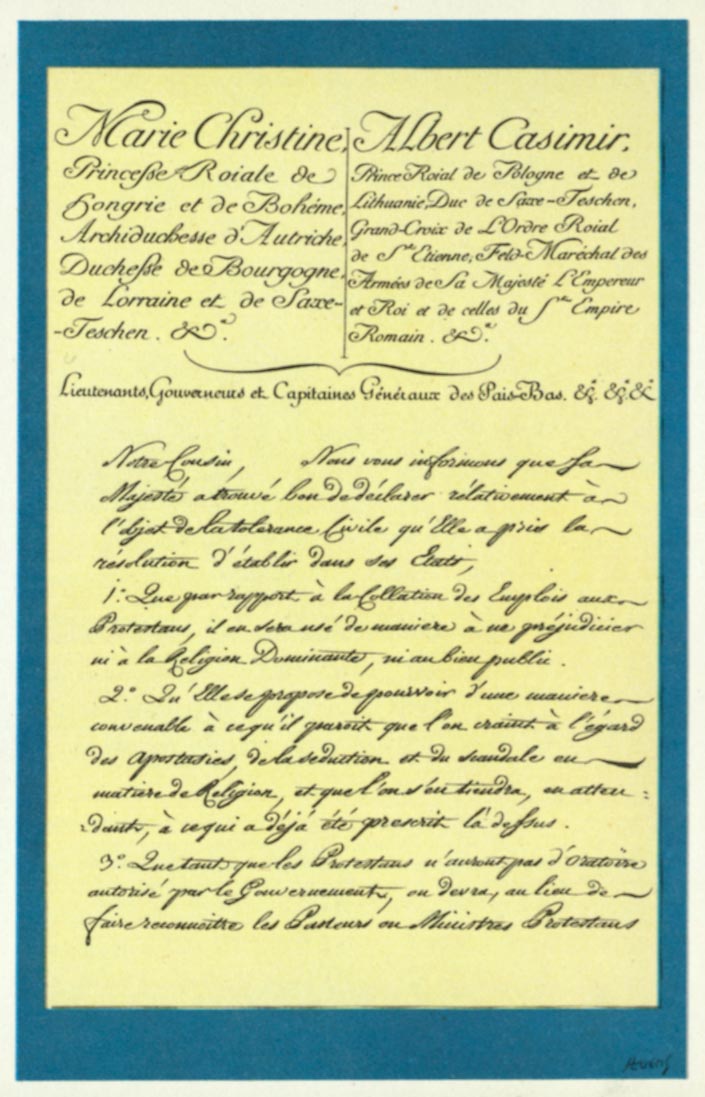 Marie Christine,
Princesse Roiale de
Hongrie et de Bohéme,
Archiduchesse d'Autriche,
Duchesse de Bourgogne,
de Lorraine et de Saxe-
-Teschen. &a.
Albert Casimir,
Prince Roial de Pologne et de
Lithuanie, Duc de Saxe-Teschen,
Grand-Croix de L'Ordre Roial
de St Etienne, Feld-Maréchal des
Armées de Sa Majesté L'Empereur
et Roi et de celles du St Empire
Romain. &a.
Lieutenants, Gouverneurs et Capitaines Généraux des Païs-Bas. &a. &a. &a
Notre Cousin, Nous vous informons que Sa
Majesté a trouvé bon de déclarer rélativement à
l'objet de la tolerance Civile qu'Elle a pris la
résolution d'établir dans ses Etats,
1.° Que par rapport à la Collation des Emplois aux
Protestans, il en sera usé de maniere à ne préjudicier
ni à la Religion Dominante, ni au bien public.
2.° Qu'Elle se propose de pourvoir d'une maniere
convenable à ce qu'il paroit que l'on craint à l'égard
des apostasies, de la séduction et du scandale en
matiere de Religion, et que l'on s'en tiendra, en atten:
:dant, à ce qui a déjà été prescrit là dessus.
3.° Que tant que les Protestans n'auront pas d'Oratoire
autorisé par le Gouvernement, on devra, au lieu de
faire reconnoitre les Pasteurs ou Ministres Protestans